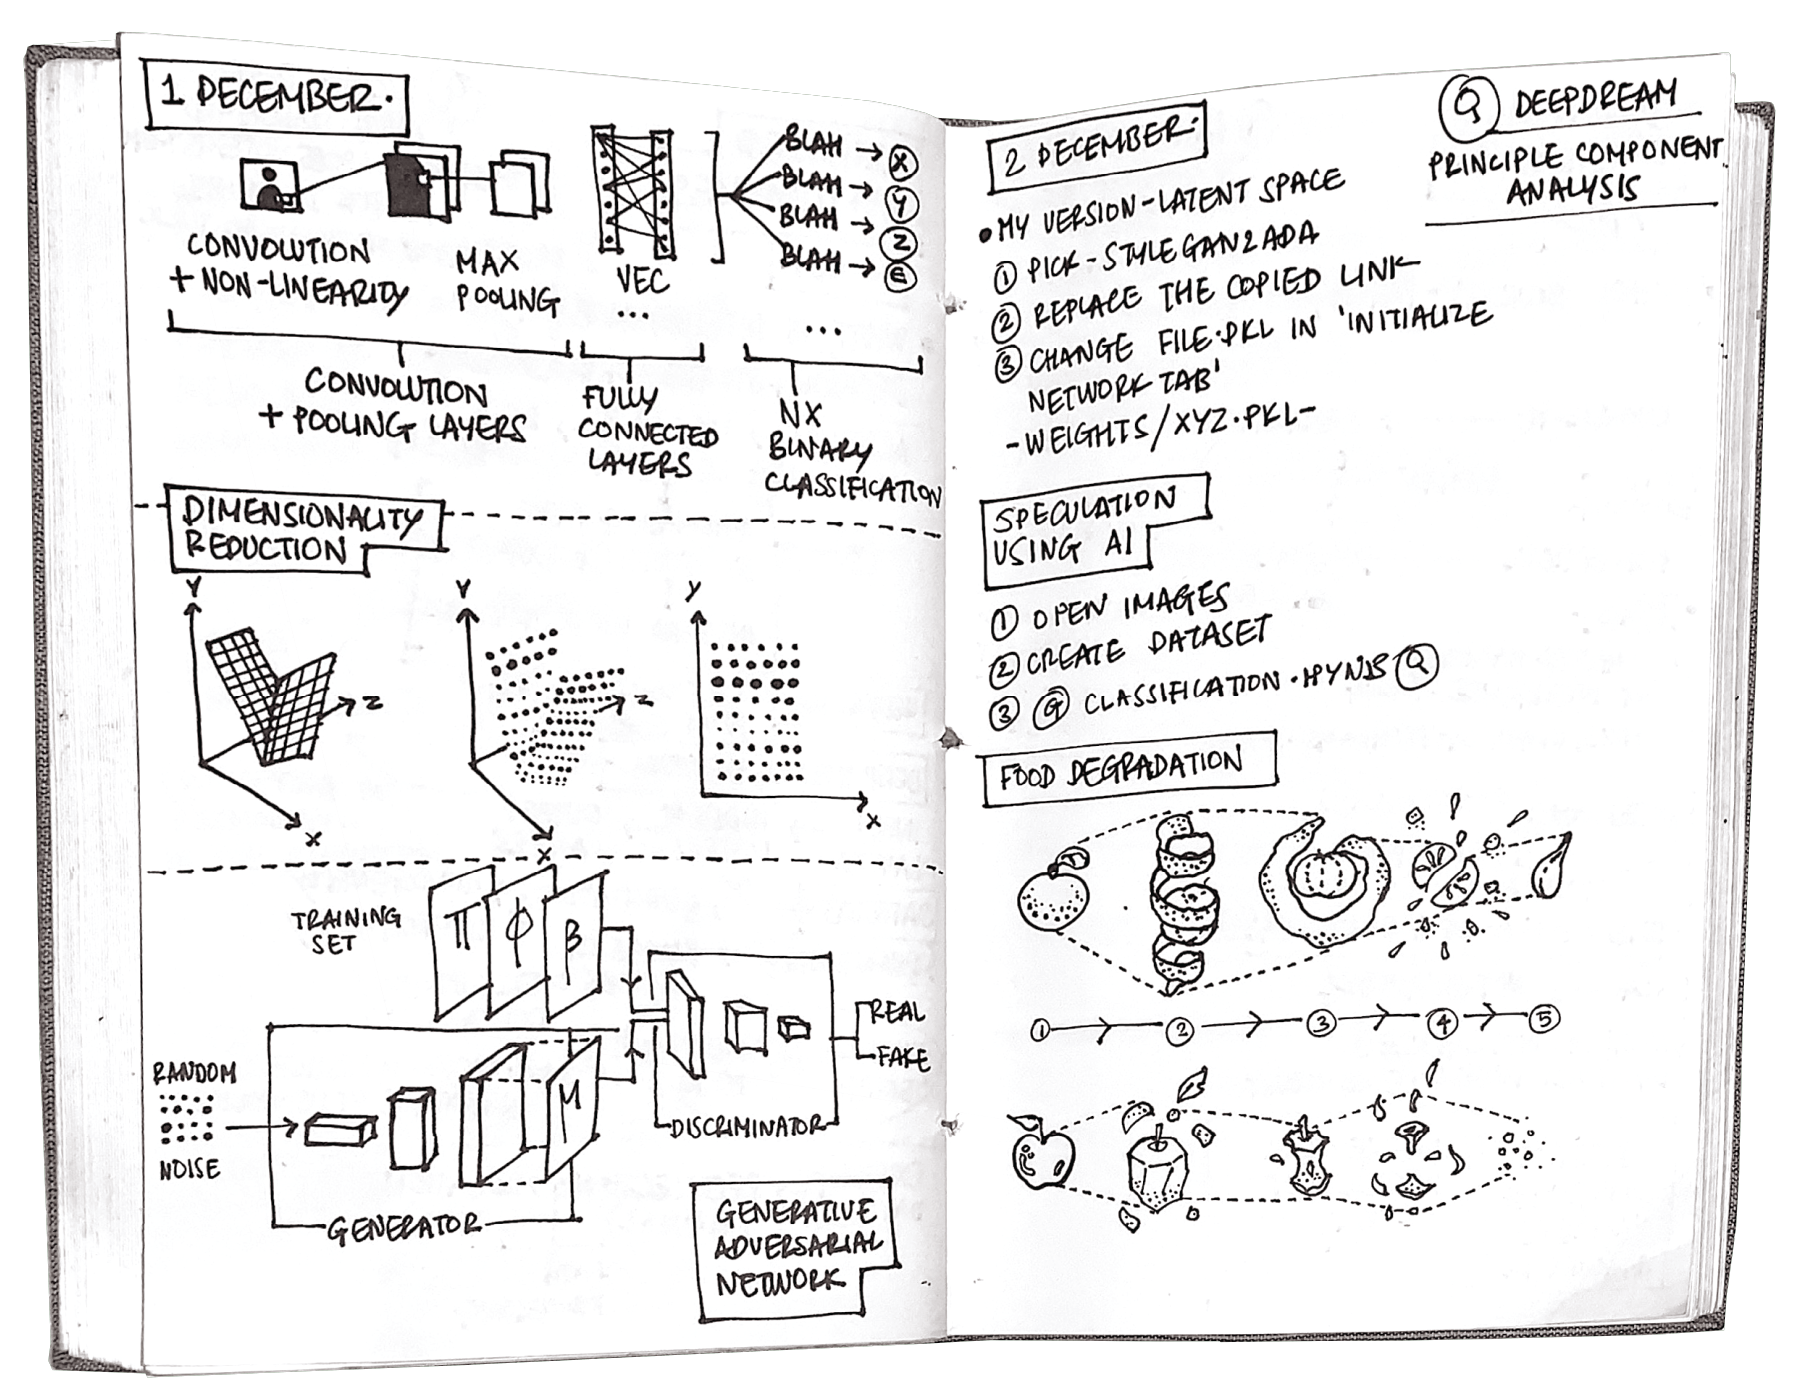 1 DECEMBER.
BLAH → X
BLAH → Y
BLAH → Z
BLAH → E
CONVOLUTION
+ NON-LINEARITY
MAX
POOLING
VEC
...
...
CONVOLUTION
+ POOLING LAYERS
FULLY
CONNECTED
LAYERS
NX
BINARY
CLASSIFICATION
DIMENSIONALITY
REDUCTION
Y
Z
X
Y
Z
X
Y
X
TRAINING
SET
π φ β
REAL
FAKE
RANDOM
NOISE
M
DISCRIMINATOR
GENERATOR
GENERATIVE
ADVERSARIAL
NETWORK
2 DECEMBER.
Q DEEPDREAM
PRINCIPLE COMPONENT
ANALYSIS
• MY VERSION - LATENT SPACE
① PICK - STYLEGAN2ADA
② REPLACE THE COPIED LINK
③ CHANGE FILE.PKL IN 'INITIALIZE
NETWORK TAB'
- WEIGHTS/XYZ.PKL -
SPECULATION
USING AI
① OPEN IMAGES
② CREATE DATASET
③ G CLASSIFICATION.IPYNB Q
FOOD DEGRADATION
① ② ③ ④ ⑤